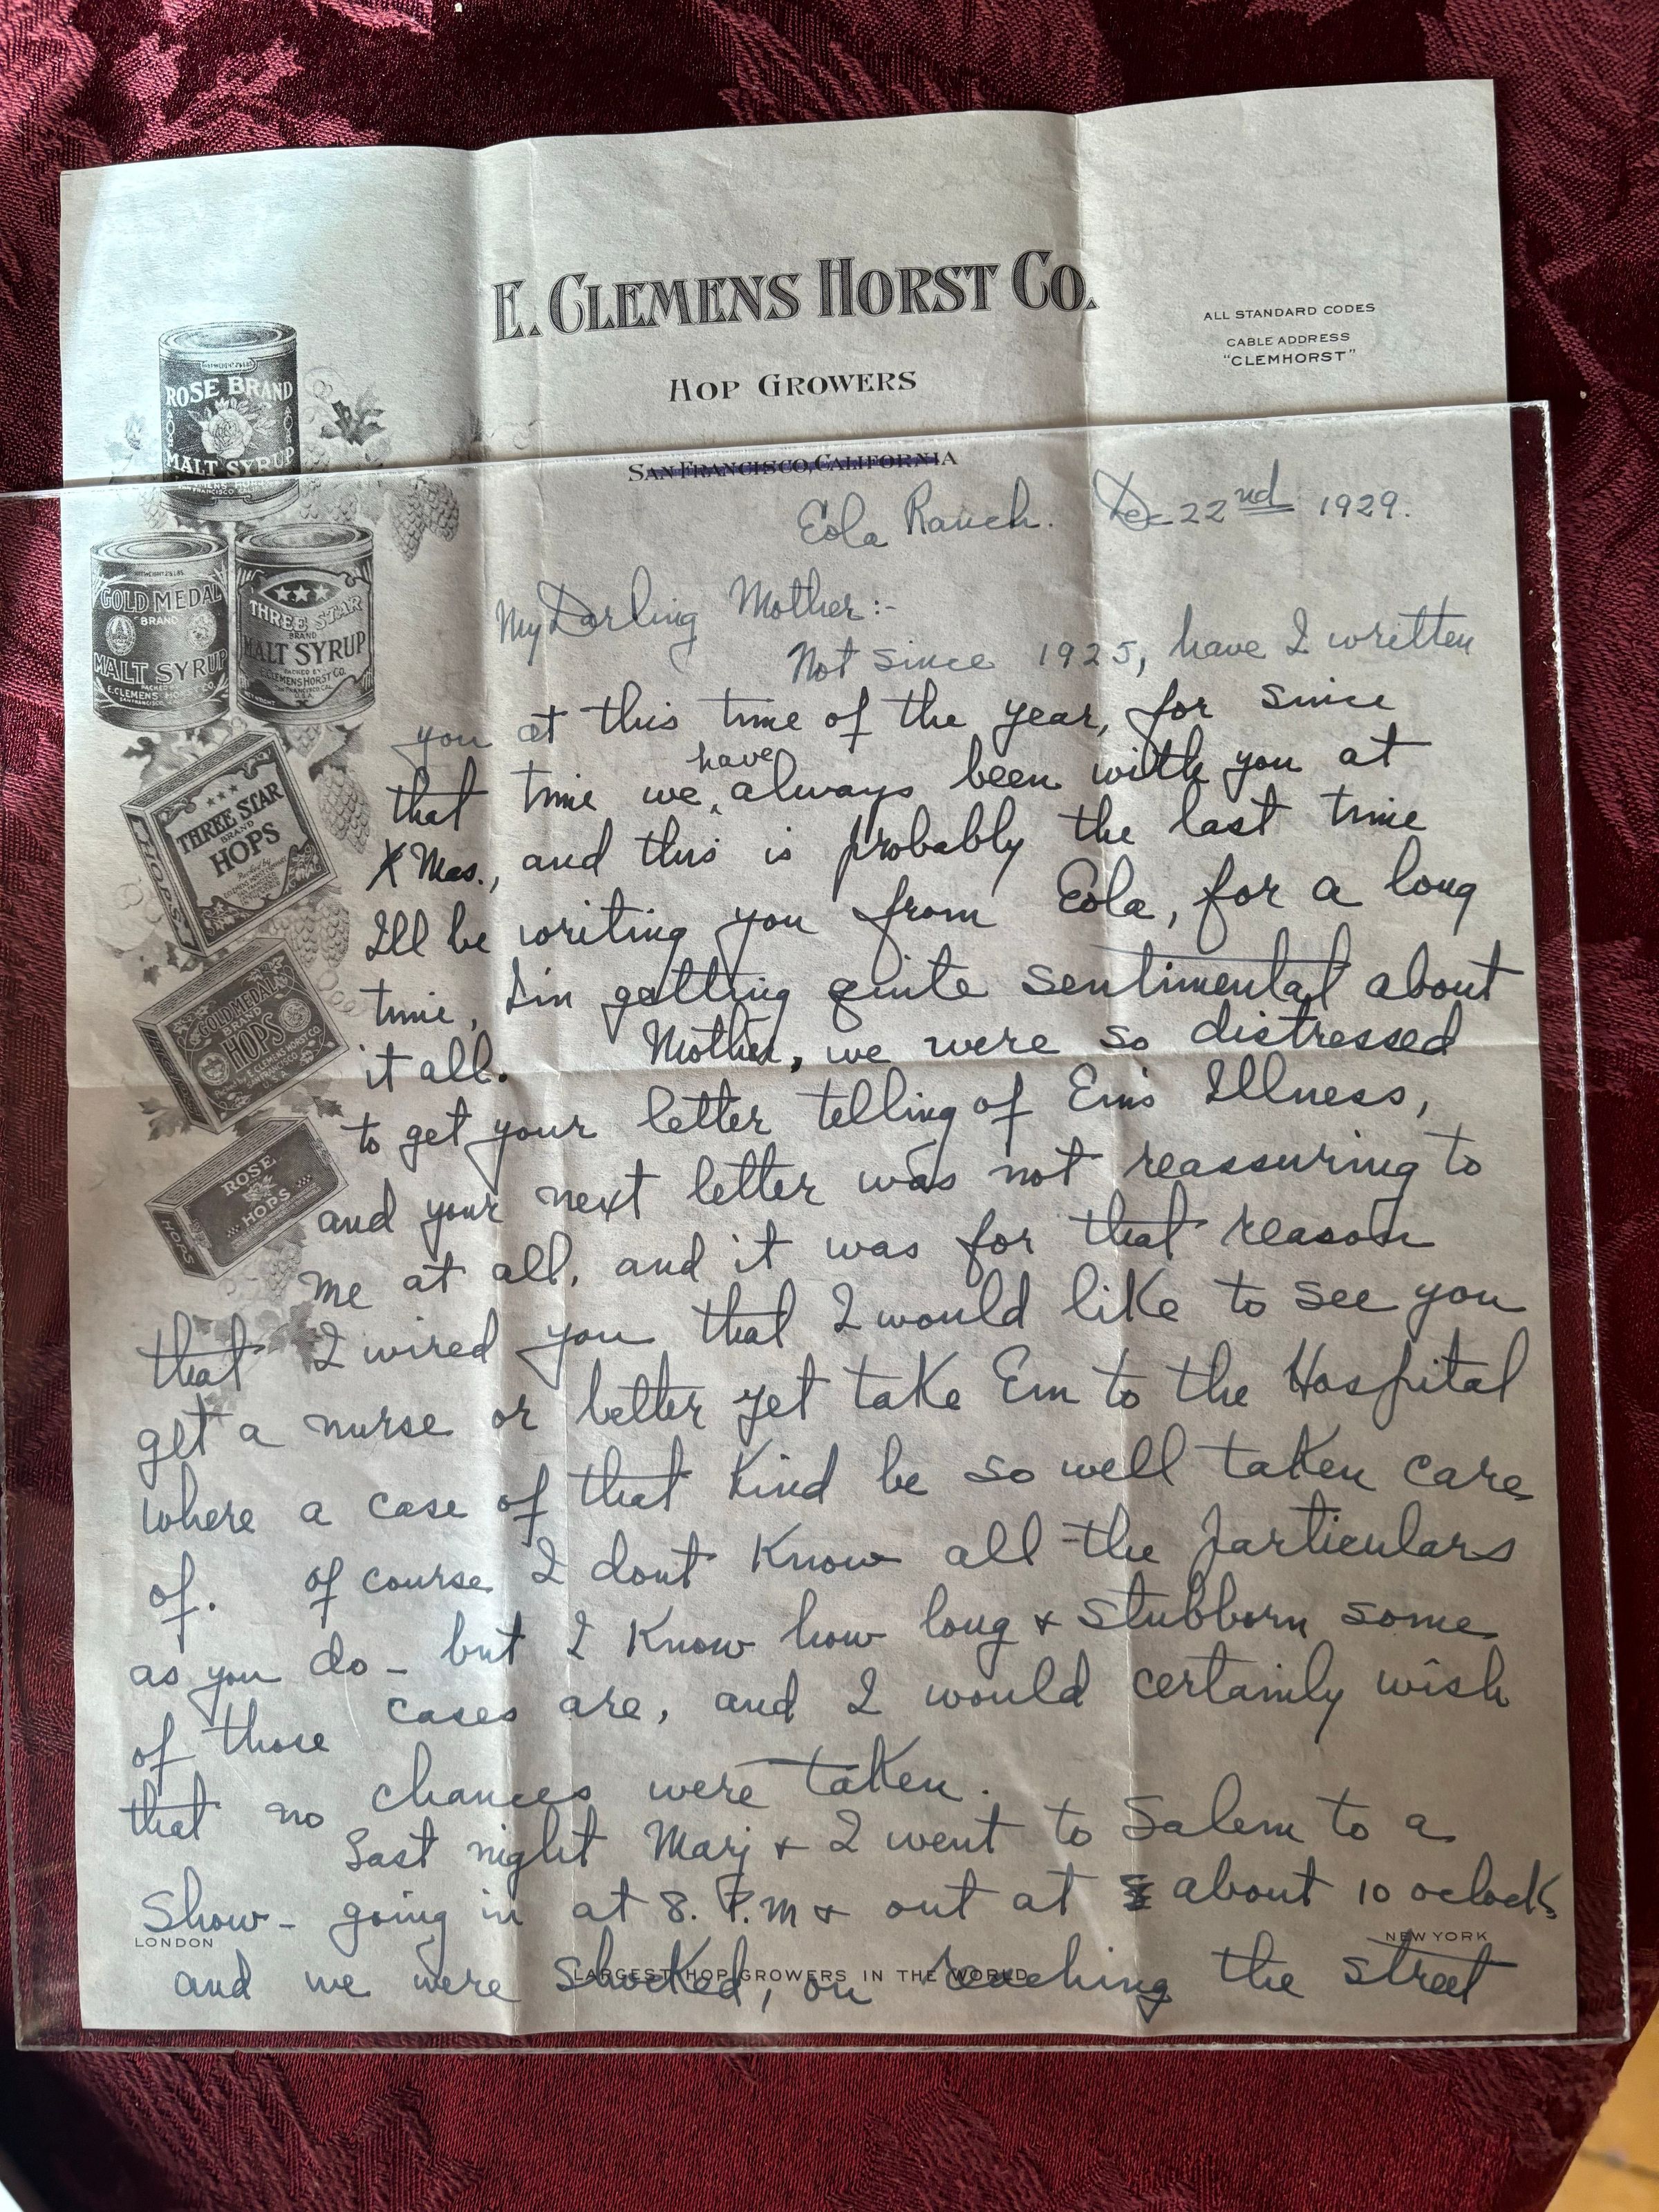 E. CLEMENS HORST CO.
HOP GROWERS
ALL STANDARD CODES
CABLE ADDRESS
"CLEMHORST"
SAN FRANCISCO, CALIFORNIA
ROSE BRAND
MALT SYRUP
GOLD MEDAL
BRAND
MALT SYRUP
PACKED BY
E. CLEMENS HORST CO.
SAN FRANCISCO CAL.
U.S.A.
THREE STAR
BRAND
MALT SYRUP
PACKED BY
E. CLEMENS HORST CO.
SAN FRANCISCO CAL.
U.S.A.
THREE STAR
BRAND
HOPS
HOPS
GOLD MEDAL
BRAND
HOPS
E. CLEMENS HORST CO.
SAN FRANCISCO
U.S.A.
ROSE
HOPS
HOPS
Eola Ranch. Dec 22nd 1929.
My Darling Mother:-
Not since 1925, have I written
you at this time of the year, for since
that time we have always been with you at
X Mas., and this is probably the last time
Ill be writing you from Eola, for a long
time, Im getting quite sentimental about
it all. Mother, we were so distressed
to get your letter telling of Em's Illness,
and your next letter was not reassuring to
me at all, and it was for that reason
that I wired you that I would like to see you
get a nurse or better yet take Em to the Hospital
where a case of that Kind be so well taken care
of. of course I dont Know all the particulars
as you do - but I Know how long + stubborn some
of those cases are, and I would certainly wish
that no chances were taken.
Last night Marj + I went to Salem to a
Show - going in at 8. P.M + out at about 10 oclock,
and we were shocked, on reaching the street
LONDON
NEW YORK
LARGEST HOP GROWERS IN THE WORLD